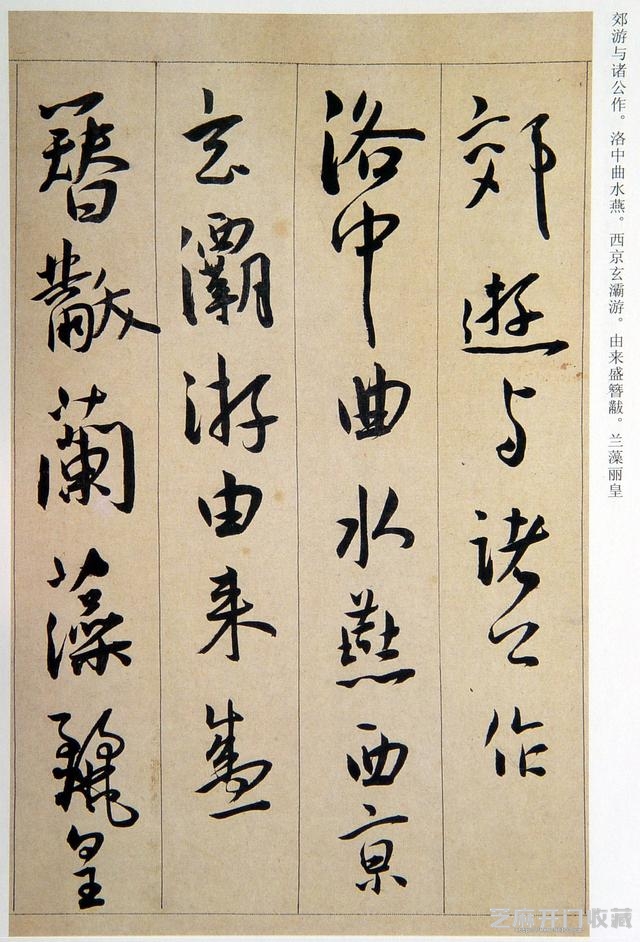 郊游与诸公作。洛中曲水燕。西京玄灞游。由来盛簪黻。兰藻丽皇
郊遊与諸公作
洛中曲水燕西京
玄灞游由来盛
簪黻蘭藻麗皇
芝麻开门收藏